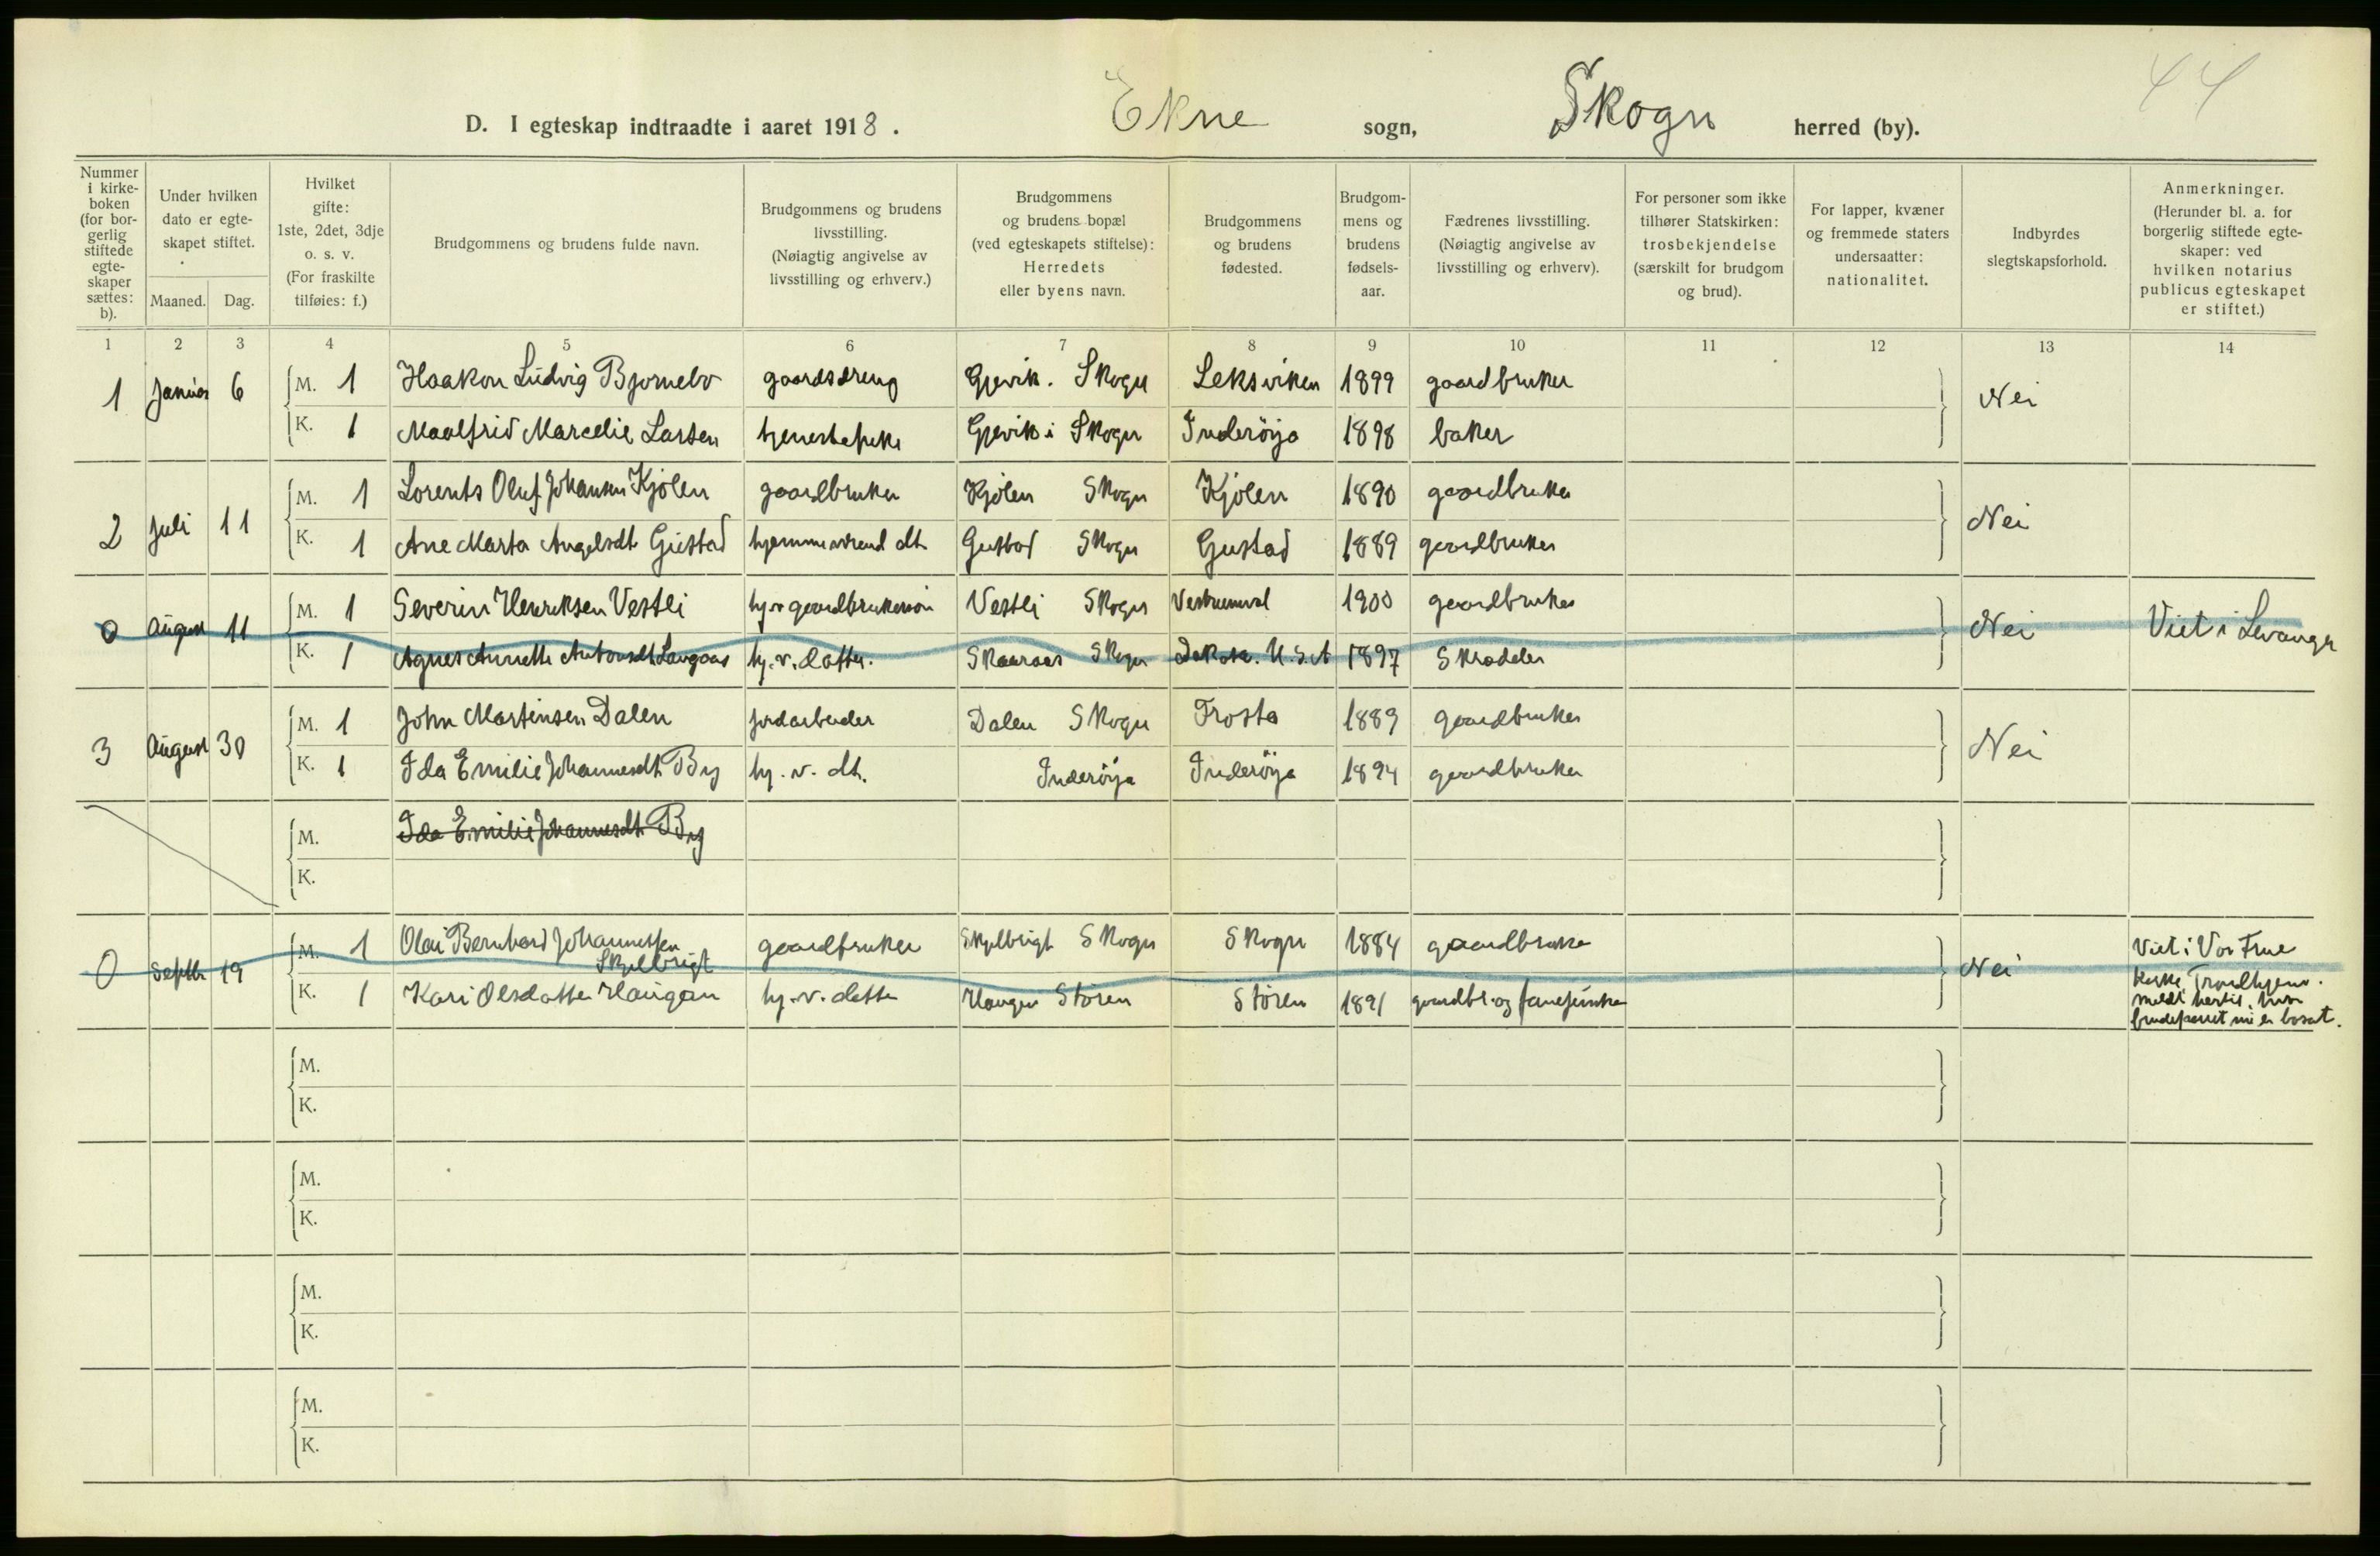 44
D. I egteskap indtraadte i aaret 1918. Ekne sogn, Skogn herred (by).
Nummer i kirke-boken (for bor-gerlig stiftede egte-skaper sættes: b).
Under hvilken dato er egte-skapet stiftet.
Maaned. Dag.
Hvilket gifte: 1ste, 2det, 3dje o. s. v. (For fraskilte tilføies: f.)
Brudgommens og brudens fulde navn.
Brudgommens og brudens livsstilling. (Nøiagtig angivelse av livsstilling og erhverv.)
Brudgommens og brudens bopæl (ved egteskapets stiftelse): Herredets eller byens navn.
Brudgommens og brudens fødested.
Brudgom-mens og brudens fødsels-aar.
Fædrenes livsstilling. (Nøiagtig angivelse av livsstilling og erhverv).
For personer som ikke tilhører Statskirken: trosbekjendelse (særskilt for brudgom og brud).
For lapper, kvæner og fremmede staters undersaatter: nationalitet.
Indbyrdes slegtskapsforhold.
Anmerkninger. (Herunder bl. a. for borgerlig stiftede egte-skaper: ved hvilken notarius publicus egteskapet er stiftet.)
1 2 3 4 5 6 7 8 9 10 11 12 13 14
1 Januar 6 M. 1 Haakon Ludvig Bjørnebo gaardsdreng Gjevik. Skogn Leksviken 1899 gaardbruker Nei
K. 1 Maalfrid Marcelie Larsen tjenestepike Gjevik i Skogn Inderöya 1898 baker
2 Juli 11 M. 1 Lorents Oluf Johansen Kjölen gaardbruker Kjölen Skogn Kjölen 1890 gaardbruker Nei
K. 1 Ane Marta Angelsdt Gustad hjemmeværend dt. Gustad Skogn Gustad 1889 gaardbruker
0 August 11 M. 1 Severin Henriksen Vestli hj.v gaardbrukersön Vestli Skogn 1900 gaardbruker Nei Viet i Levanger
K. 1 Agnes Annette Antonsdt Langaas hj.v. datter. Skaaraas Skogn Dakota. U.S.A 1897 Skrædder
3 August 30 M. 1 John Martinsen Dalen jordarbeider Dalen Skogn Frosta 1889 gaardbruker Nei
K. 1 Ida Emilie Johannesdt By hj. v. dt. Inderöya Inderöya 1894 gaardbruker
M. Ida Emilie Johannesdt By
K.
0 Septbr 19 M. 1 Olai Bernhard Johannessen Skjelbrigt gaardbruker Skjelbrigt Skogn Skogn 1884 gaardbruker Nei Viet i Vor Frue
K. 1 Kari Olsdatter Haugen hj. v. datter Haugen Stören Stören 1891 gaardbr. og kirke, Trondhjem.
meldt hertil, hvor
brudeparret nu er bosat.
M.
K.
M.
K.
M.
K.
M.
K.